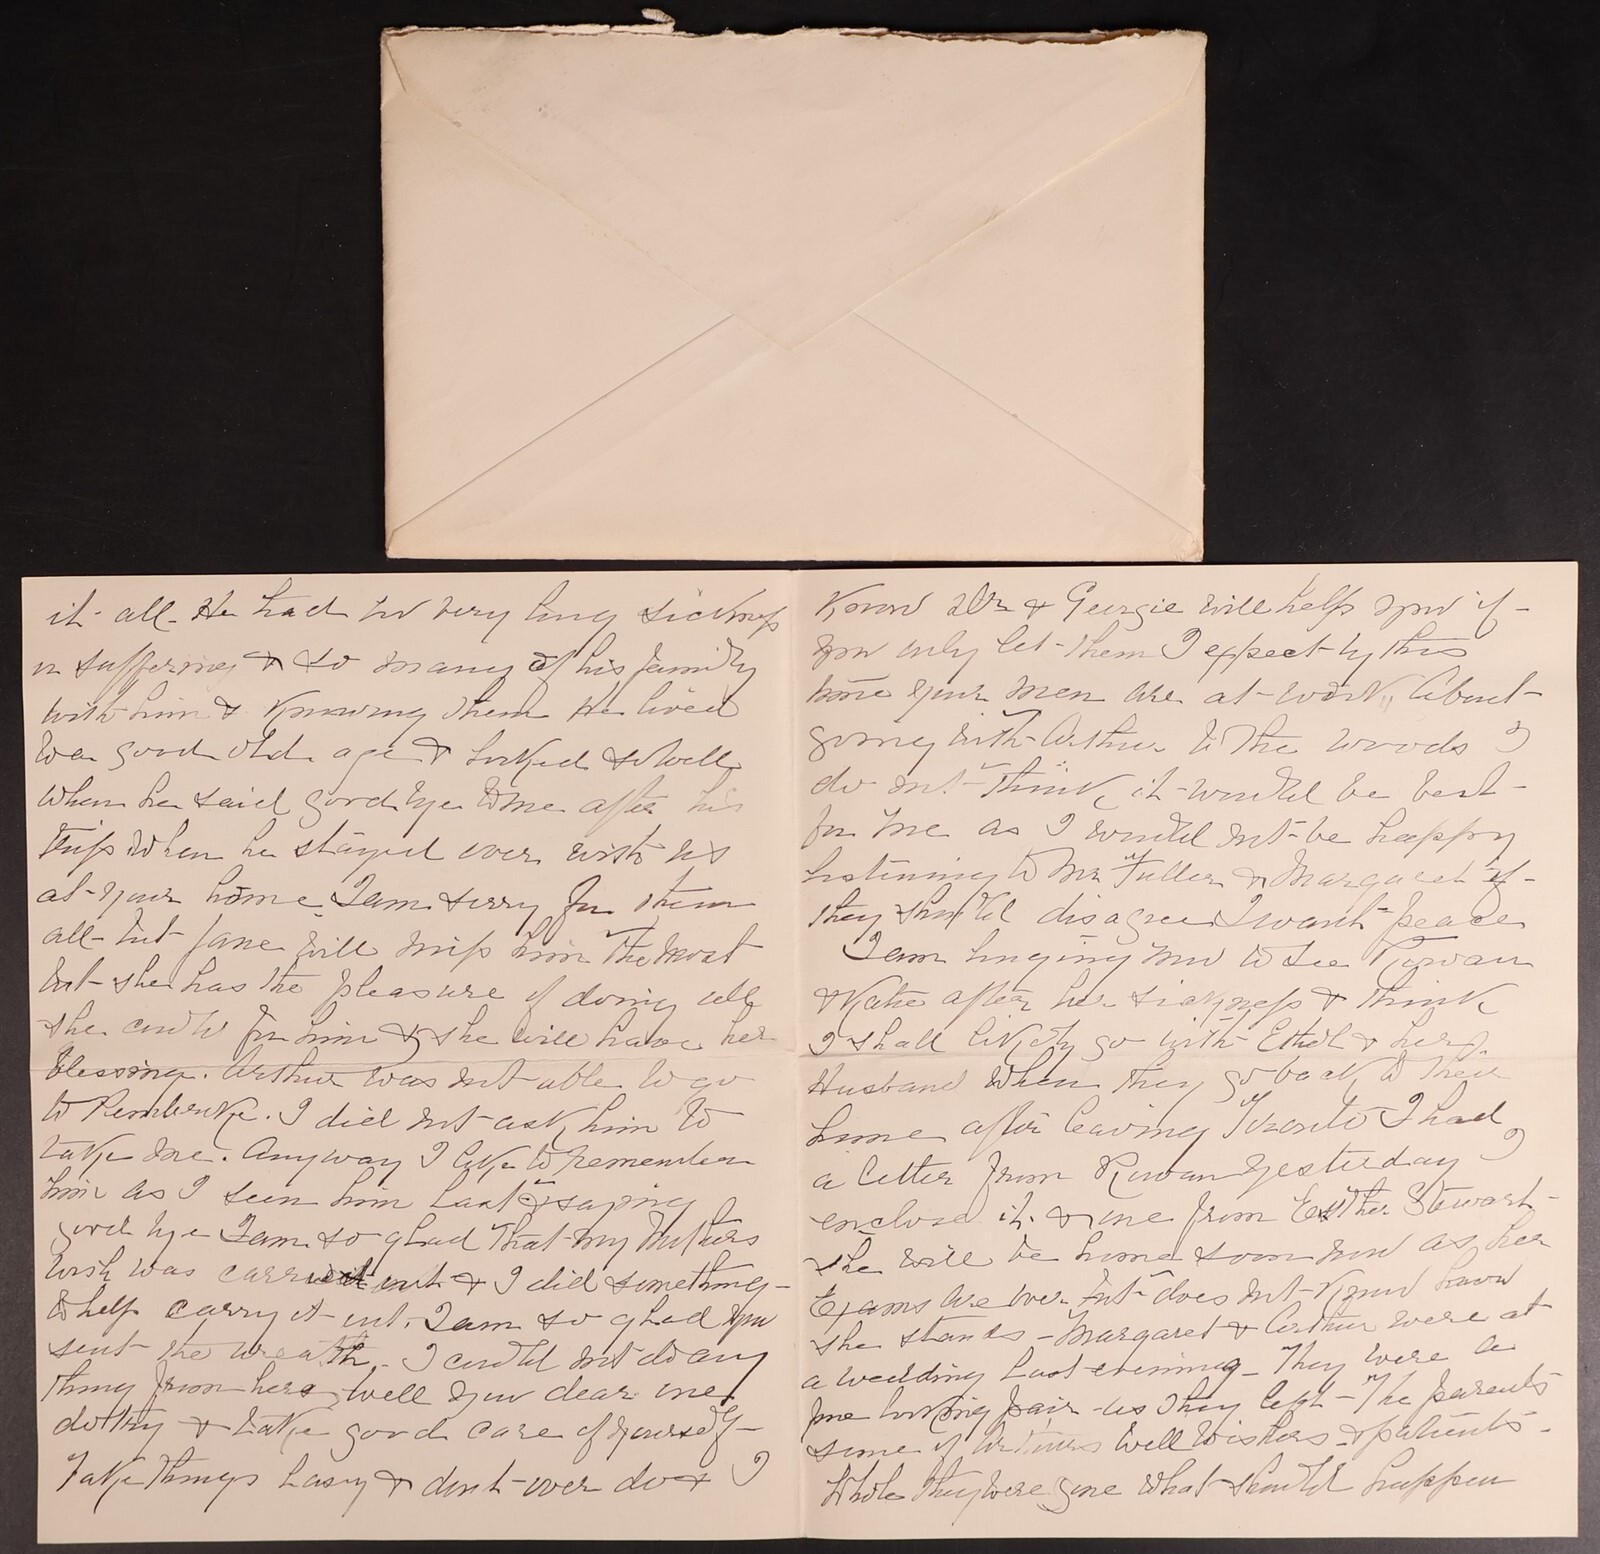 it all. He had no very long sickness
or suffering & so many of his family
with him & knowing them He lived
to a good old age & looked so well
when he said good bye to me after his
trip when he stayed over with us
at your home. I am sorry for them
all but Jane will miss him the most
but she has the pleasure of doing all
she could for him & she will have her
blessing. Arthur was not able to go
to Pembroke. I did not ask him to
take me. Anyway I like to remember
him as I seen him last & saying
good bye I am so glad that my Mothers
wish was carried out & I did something
to help carry it out. I am so glad you
sent the wreath. I could not do any
thing from here, well you dear one
do try & take good care of yourself
Take things easy & dont over do & I
know & Georgie will help you if
you only let them I expect by this
time your men are at work, About
going with Arthur to the woods I
do not think it would be best
for me as I would not be happy
listening to Mr Fuller & Margaret if
they should disagree I want peace
I am longing now to see Rowan
& Katie after her sickness & think
I shall likely go with Ethel & her
Husband when they go back to their
home after leaving Toronto I had
a letter from Rowan yesterday I
enclose it & one from Esther Stewart
she will be home soon now as her
Exams are over but does not know how
she stands - Margaret & Arthur were at
a wedding last evening - They were a
fine looking pair as they left - The parents
some of Arthurs well wishers & patients.
While they were gone what should happen